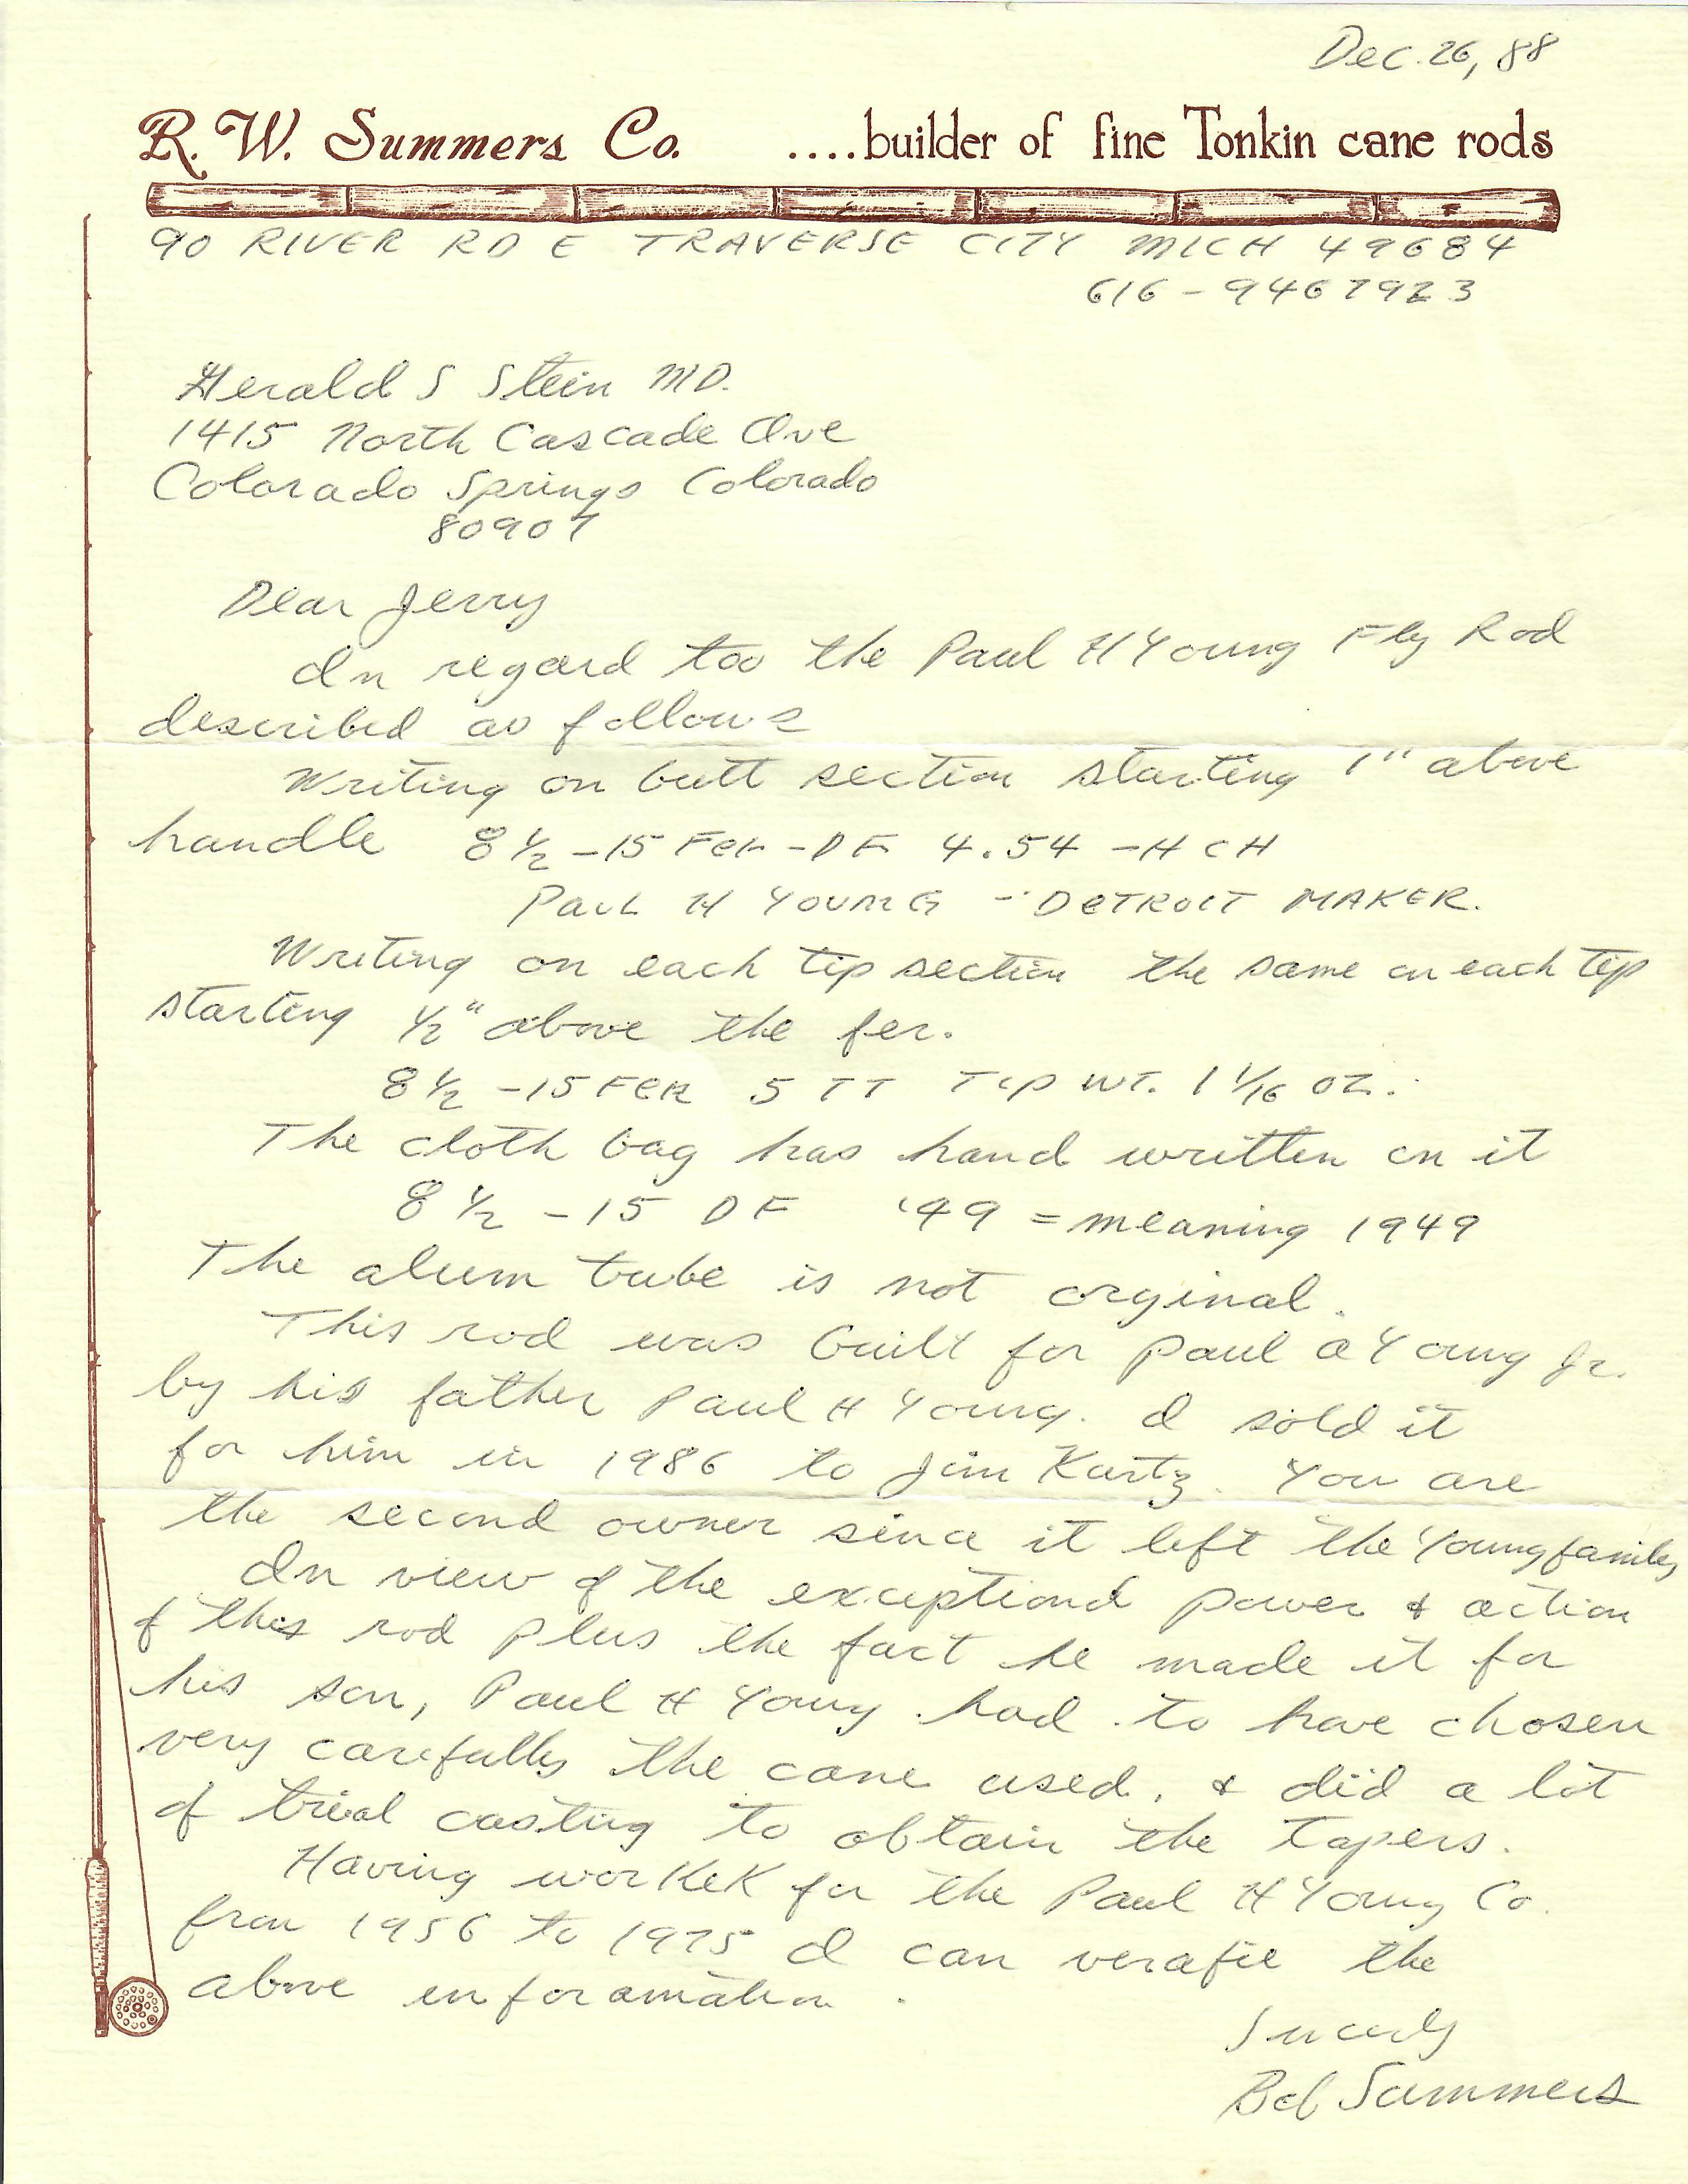 Dec. 26, 88
R. W. Summers Co. ....builder of fine Tonkin cane rods
90 RIVER RD E TRAVERSE CITY MICH 49684
616 - 946 7923
Herald S Stein MD.
1415 North Cascade Ave
Colorado Springs Colorado
80907
Dear Jerry
In regard too the Paul H Young Fly Rod
described as follows
Writing on butt section starting 1" above
handle 8 1/2 - 15 Fer - DF 4.54 - HCH
PAUL H YOUNG - DETROIT MAKER.
Writing on each tip section the same on each tip
starting 1/2" above the fer.
8 1/2 - 15 FER 5 TT TIP WT. 1 1/16 OZ.
The cloth bag has hand written on it
8 1/2 - 15 DF '49 = meaning 1949
The alum tube is not orginal.
This rod was built for Paul a Young Jr.
by his father Paul H Young. I sold it
for him in 1986 to Jim Kurtz. You are
the second owner since it left the Young family
In view of the exceptional power & action
of this rod plus the fact he made it for
his son, Paul H Young had to have chosen
very carefully the cane used, & did a lot
of trial casting to obtain the tapers.
Having workek for the Paul H Young Co.
from 1956 to 1975 I can verafie the
above inforamation.
Sincerly
Bob Summers